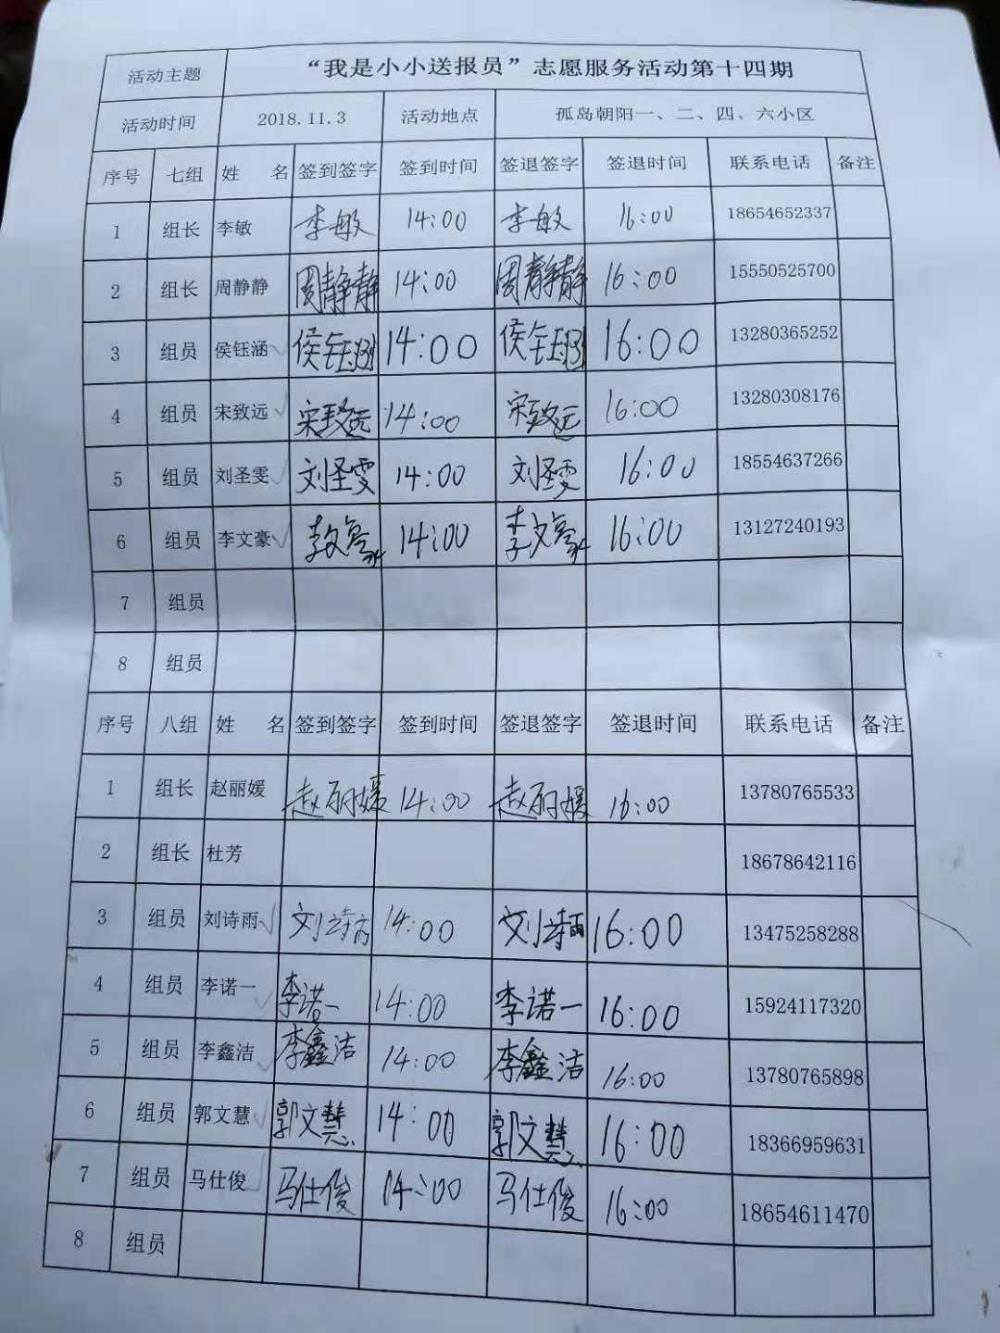 活动主题 “我是小小送报员”志愿服务活动第十四期
活动时间 2018.11.3 活动地点 孤岛朝阳一、二、四、六小区
序号 七组 姓 名 签到签字 签到时间 签退签字 签退时间 联系电话 备注
1 组长 李敏 李敏 14:00 李敏 16:00 18654652337
2 组长 周静静 周静静 14:00 周静静 16:00 15550525700
3 组员 侯钰涵 侯钰涵 14:00 侯钰涵 16:00 13280365252
4 组员 宋致远 宋致远 14:00 宋致远 16:00 13280308176
5 组员 刘圣雯 刘圣雯 14:00 刘圣雯 16:00 18554637266
6 组员 李文豪 李文豪 14:00 李文豪 16:00 13127240193
7 组员
8 组员
序号 八组 姓 名 签到签字 签到时间 签退签字 签退时间 联系电话 备注
1 组长 赵丽媛 赵丽媛 14:00 赵丽媛 16:00 13780765533
2 组长 杜芳 18678642116
3 组员 刘诗雨 刘诗雨 14:00 刘诗雨 16:00 13475258288
4 组员 李诺一 李诺一 14:00 李诺一 16:00 15924117320
5 组员 李鑫洁 李鑫洁 14:00 李鑫洁 16:00 13780765898
6 组员 郭文慧 郭文慧 14:00 郭文慧 16:00 18366959631
7 组员 马仕俊 马仕俊 14:00 马仕俊 16:00 18654611470
8 组员